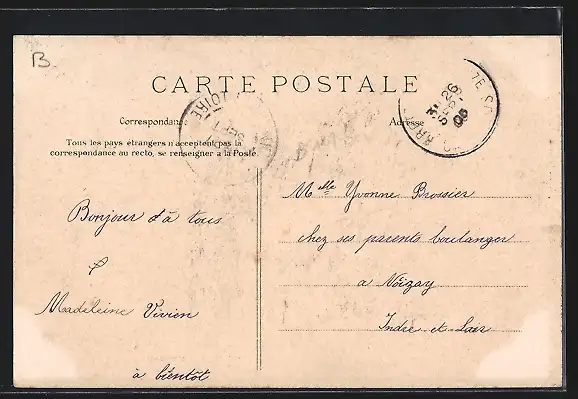 B
CARTE POSTALE
Correspondance
Adresse
Tous les pays étrangers n'acceptent pas la
correspondance au recto, se renseigner à la Poste.
SEP 26
05
Bonjour d'à tous
Madeleine Vivien
à bientôt
Melle Yvonne Brossier
chez ses parents boulanger
a Noizay
Indre et Loir